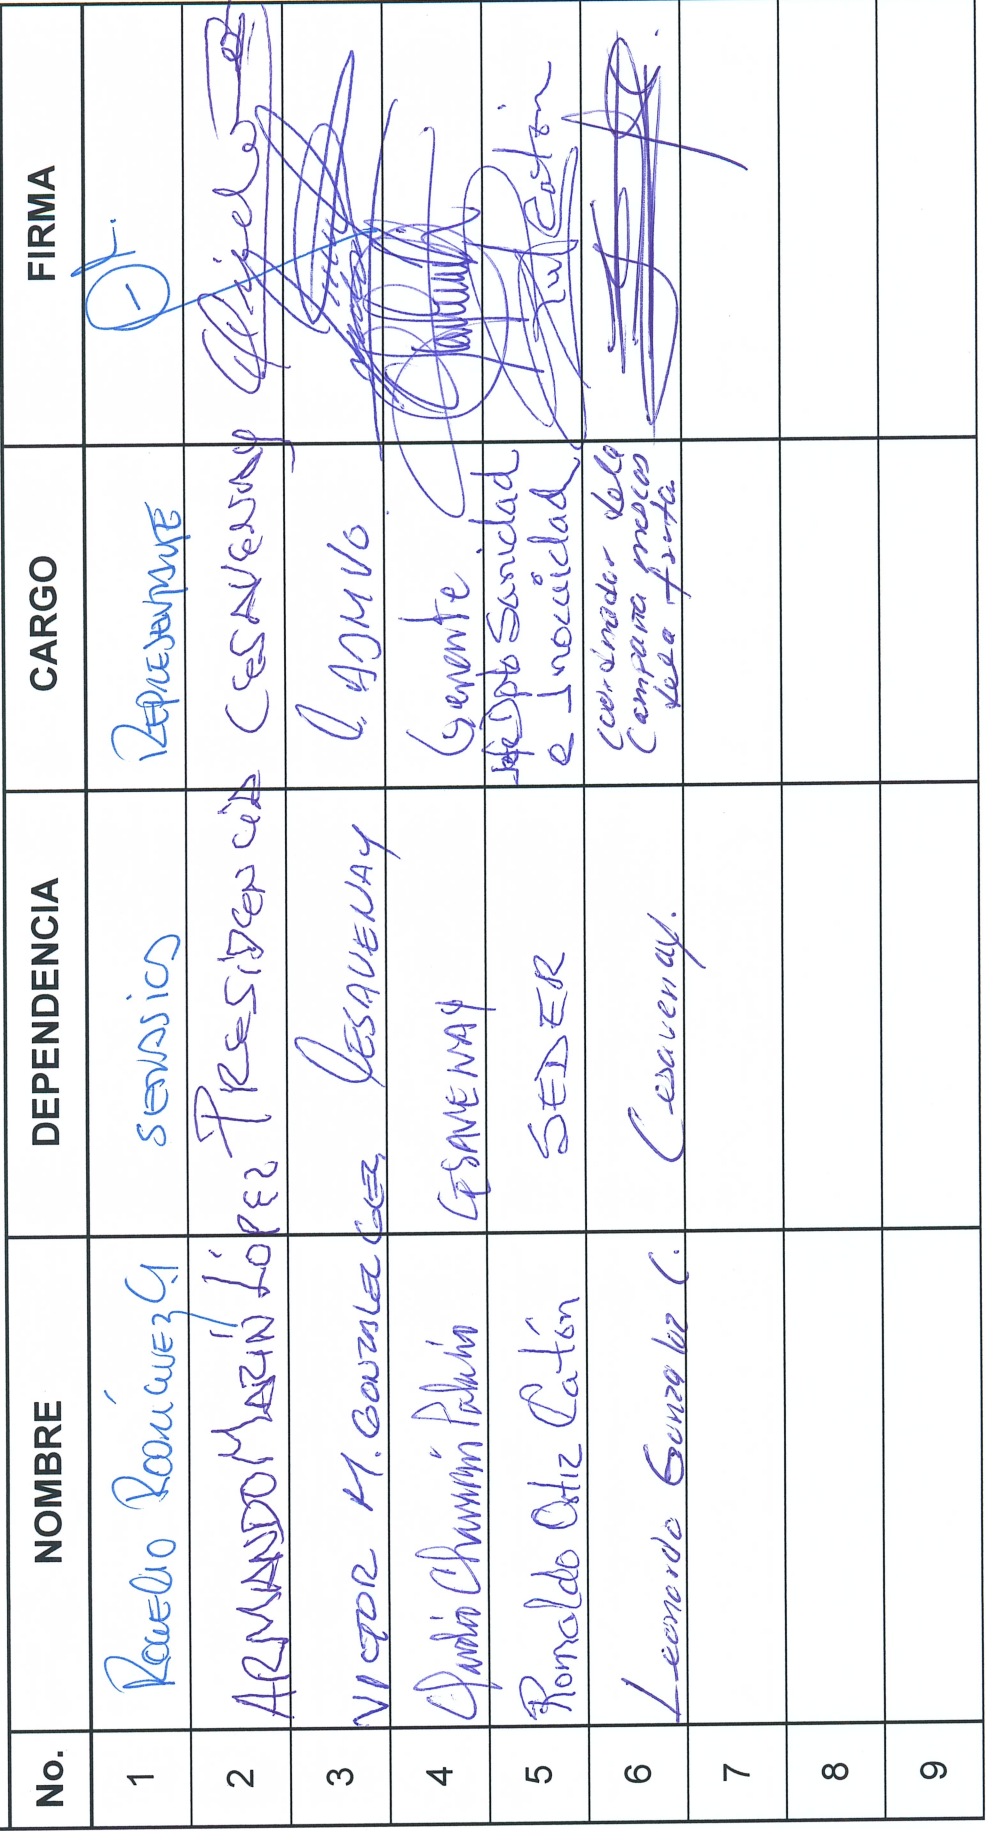 No. NOMBRE DEPENDENCIA CARGO FIRMA
1 ROGELIO RODRÍGUEZ G SENASICA REPRESENTANTE
2 ARMANDO MARÍN LÓPEZ PRESIDENCIA CESAVENAY
3 VICTOR M. GONZALEZ CESAVENAY ADMVO
4 Claudio Chavarrín Palacio CESAVENAY Gerente
5 Romaldo Ortiz Catón SEDER Jefe Dpto Sanidad
e Inocuidad Catón
6 Leonardo Gonzalez C. Cesavenay. coordinador de la
Campaña moscas
de la fruta
7
8
9